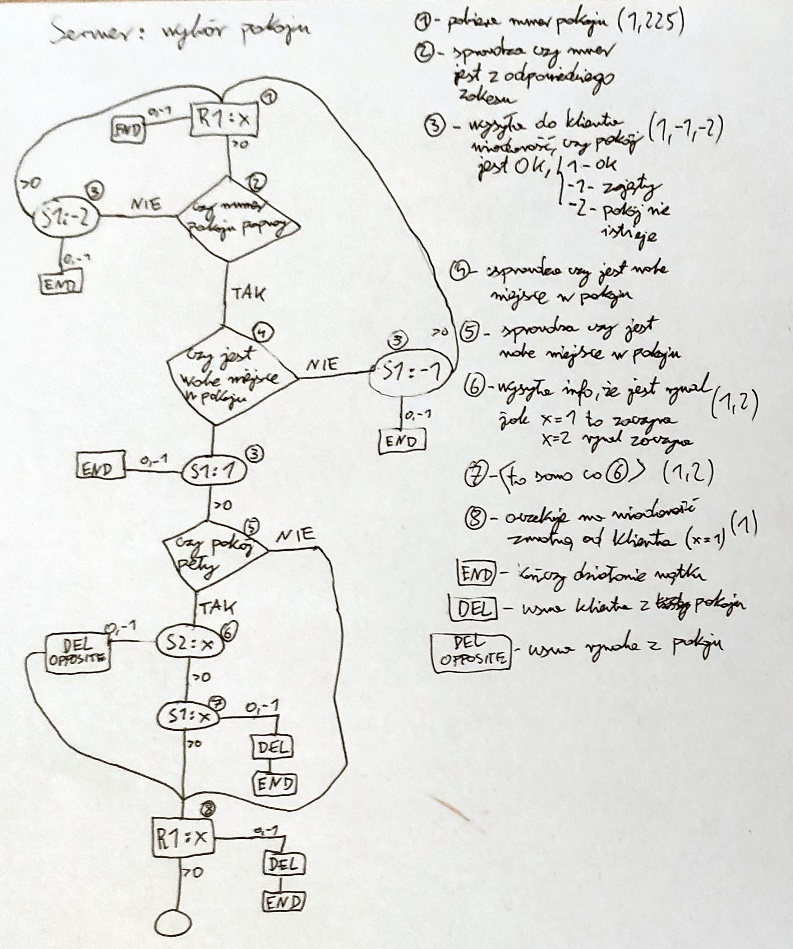 Serwer: wybór pokoju
1
R1:x
0,-1
END
>0
2
czy numer
pokoju poprawny
NIE
3
S1:-2
>0
0,-1
END
TAK
4
czy jest
wolne miejsce
w pokoju
NIE
3
S1:-1
>0
0,-1
END
3
S1:1
0,-1
END
>0
5
czy pokój
pełny
NIE
TAK
6
S2:x
0,-1
DEL
OPPOSITE
>0
7
S1:x
0,-1
DEL
END
>0
8
R1:x
0,-1
DEL
END
>0
1 - pobiera numer pokoju (1,225)
2 - sprawdza czy numer
jest z odpowiedniego
zakresu
3 - wysyła do klienta
wiadomość, czy pokój (1,-1,-2)
jest OK, 1 - ok
-1 - zajęty
-2 - pokój nie
istnieje
4 - sprawdza czy jest wolne
miejsce w pokoju
5 - sprawdza czy jest
wolne miejsce w pokoju
6 - wysyła info, że jest rywal (1,2)
jak x=1 to zaczyna
x=2 rywal zaczyna
7 - <to samo co 6> (1,2)
8 - oczekuje na wiadomość
zwrotną od klienta (x=1) (1)
END - kończy działanie wątku
DEL - usuwa klienta z pokoju
DEL
OPPOSITE - usuwa rywala z pokoju